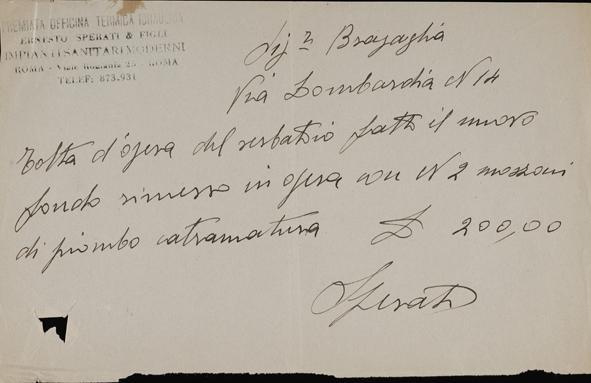 PREMIATA OFFICINA TERMICA IDRAULICA
ERNESTO SPERATI & FIGLI
IMPIANTI SANITARI MODERNI
ROMA - Viale 25 - ROMA
TELEF: 873.931
Sigr Bragaglia
Via Lombardia N 14
Tolta d'opera del serbatoio fatto il nuovo
fondo rimesso in opera con N 2 mozzoni
di piombo catramatura £ 200,00
Sperati